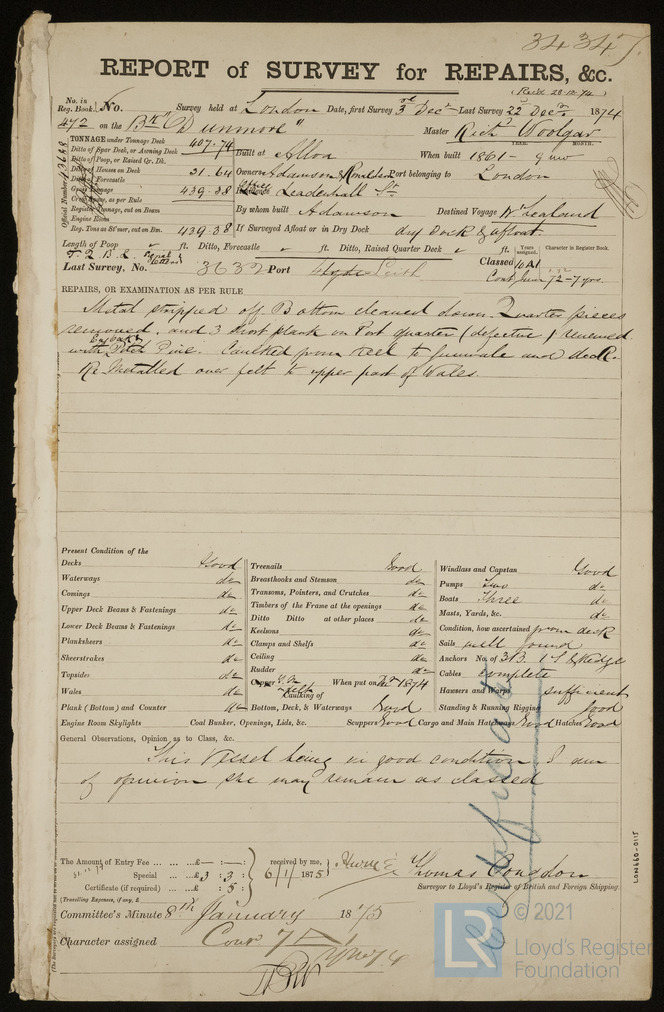 34347
REPORT of SURVEY for REPAIRS, &c.
(Recd 28.12.74)
No. in Reg. Book. No. Survey held at London Date, first Survey 3rd Decr Last Survey 22nd Decr 1874
472 on the Bk "Dunmore" Master Richd Woolgar
TONNAGE under Tonnage Deck 407.74
Ditto of Spar Deck, or Awning Deck
Ditto of Poop, or Raised Qr. Dk.
Ditto of Houses on Deck 31.64
Ditto of Forecastle
Gross Tonnage 439.38
Crew Space, as per Rule
Register Tonnage, cut on Beam
Engine Room
Reg. Tons as St'mer, cut on Bm. 439.38
Official Number
Built at Alloa When built 1861 - YEAR. MONTH.
Owners Adamson & Ronaldson Port belonging to London
Leadenhall St
By whom built Adamson Destined Voyage N. Zealand
If Surveyed Afloat or in Dry Dock dry Dock & afloat
Length of Poop ft. Ditto, Forecastle ft. Ditto, Raised Quarter Deck ft.
Years assigned. Character in Register Book.
Last Survey, No. 3632 Port Leith
Classed 10 A1
Cont June 72-7 yrs.
REPAIRS, OR EXAMINATION AS PER RULE
Metal stripped off Bottom cleaned down. Quarter pieces
removed, and 3 short plank on Port quarter (defective) renewed
with Pitch Pine. Caulked from keel to gunwale and deck.
Re Metalled over felt to upper part of Wales.
Present Condition of the
Decks Good
Waterways do
Comings do
Upper Deck Beams & Fastenings do
Lower Deck Beams & Fastenings do
Planksheers do
Sheerstrakes do
Topsides do
Wales do
Plank (Bottom) and Counter do
Engine Room Skylights Coal Bunker, Openings, Lids, &c.
Treenails Good
Breasthooks and Stemson do
Transoms, Pointers, and Crutches do
Timbers of the Frame at the openings do
Ditto Ditto at other places do
Keelsons do
Clamps and Shelfs do
Ceiling do
Rudder do
Copper Y.M. on Felt When put on Decr 1874
Caulking of
Bottom, Deck, & Waterways Good
Scuppers Good Cargo and Main Hatchways Good Hatches Good
Windlass and Capstan Good
Pumps Two do
Boats Three do
Masts, Yards, &c. do
Condition, how ascertained from deck
Sails well found
Anchors No. of 3 B. 1 S & Kedge
Cables complete
Hawsers and Warps sufficient
Standing & Running Rigging Good
General Observations, Opinion as to Class, &c.
This Vessel being in good condition I am
of opinion she may remain as classed
Certificate
The Amount of Entry Fee ... ... ... £ — : — :
Special ... ... £3 : 3 :
Certificate (if required) ... ... £ : 5 :
received by me,
6/1/1875
(Travelling Expenses, if any, £
Thomas Congdon
Surveyor to Lloyd's Register of British and Foreign Shipping.
Committee's Minute 8th January 1875
Character assigned Cont 7
LON660-0115
LR
© 2021
Lloyd's Register
Foundation